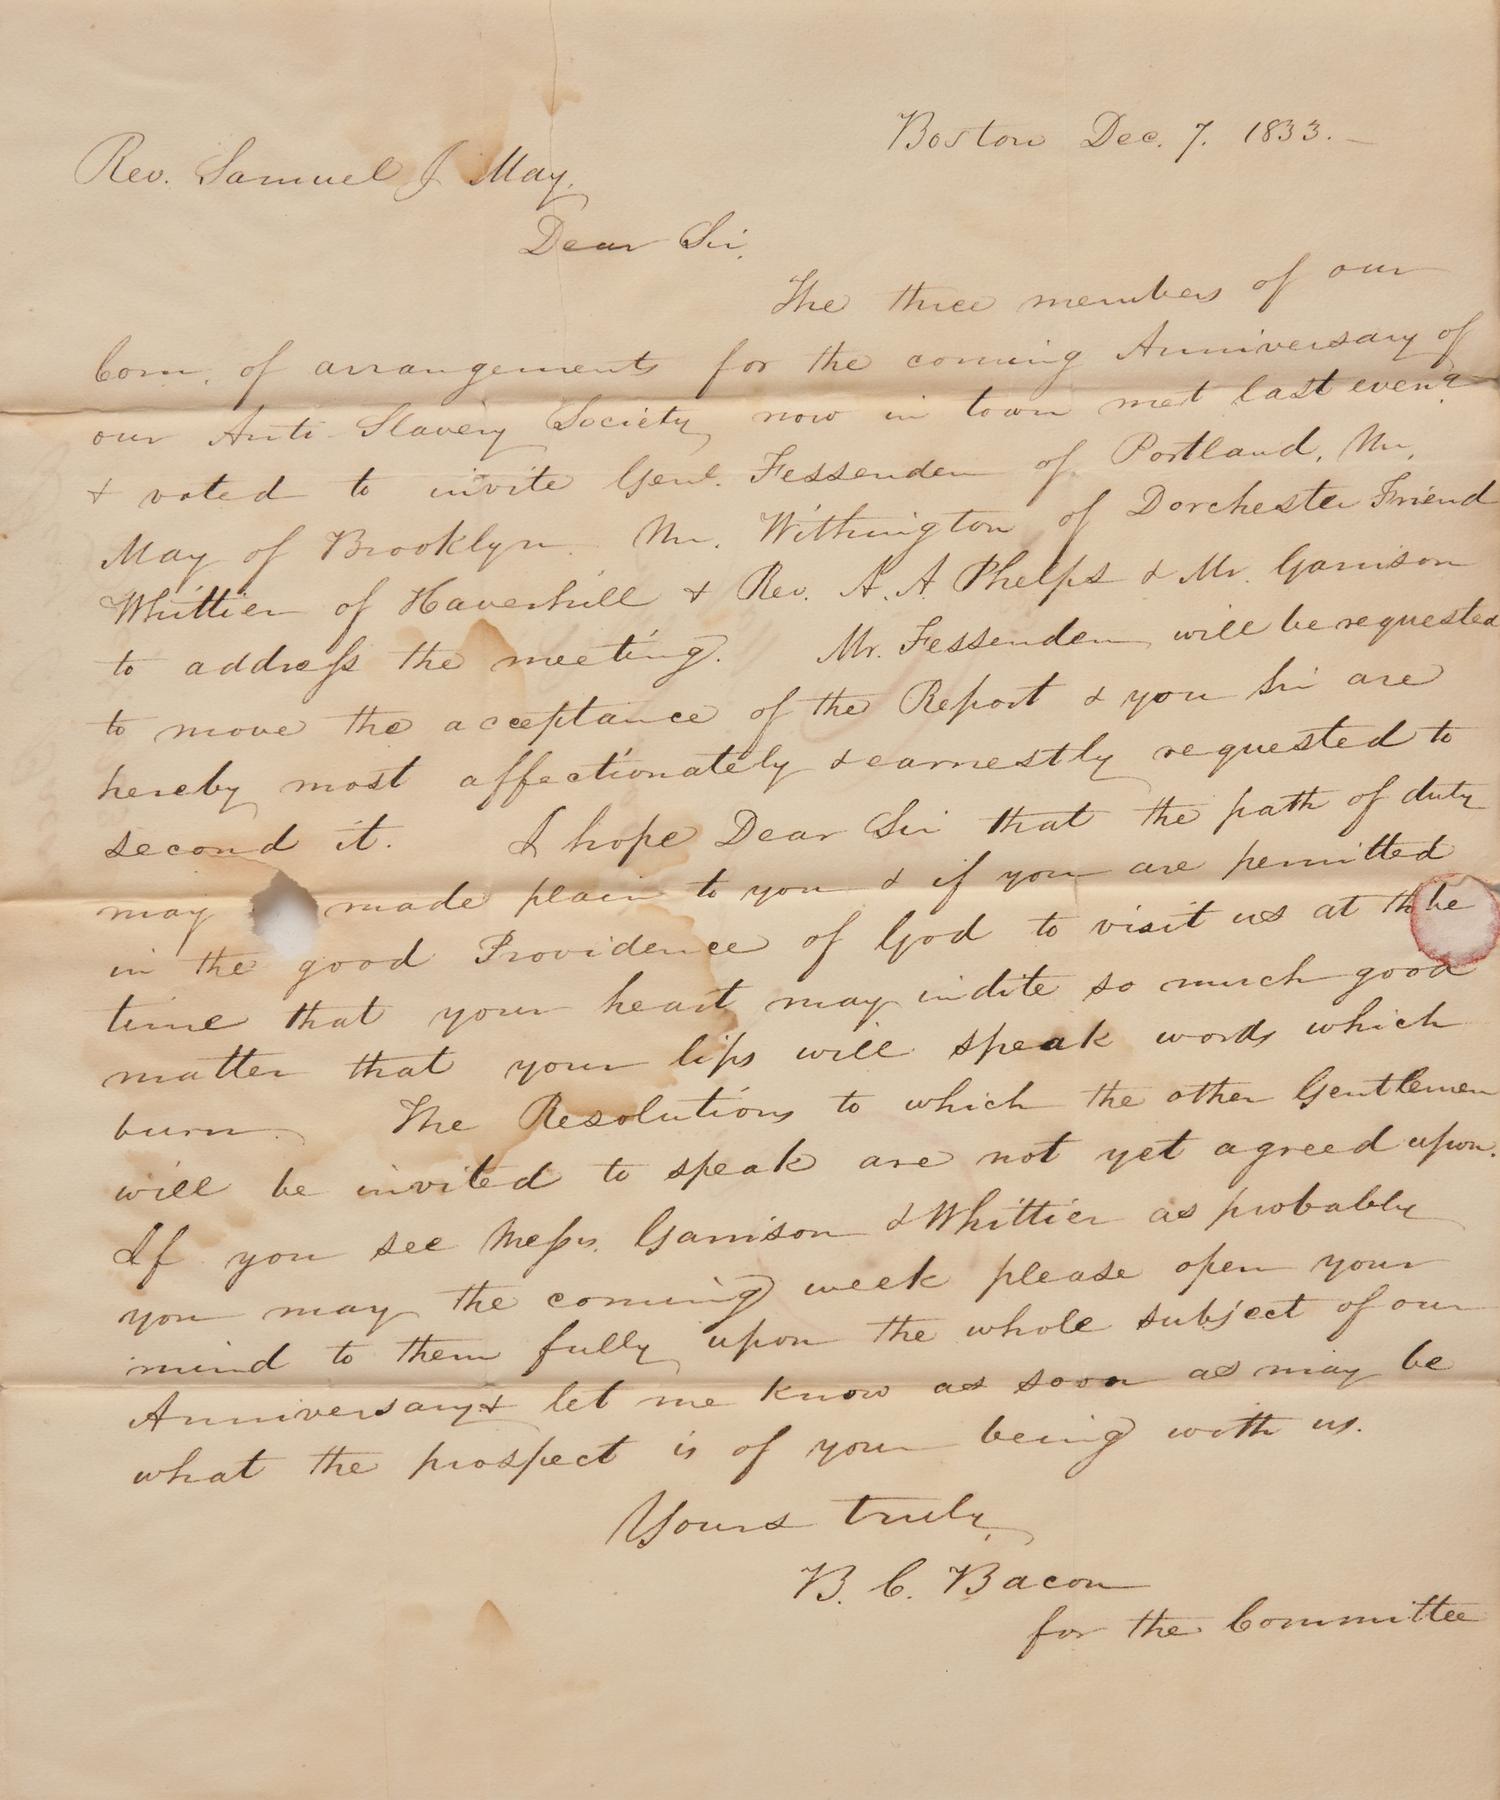 Boston Dec. 7. 1833. –
Rev. Samuel J May,
Dear Sir,
The three members of our
Com. of arrangements for the coming Anniversary of
our Anti-Slavery Society now in town met last eveng
& voted to invite Genl. Fessenden of Portland, Mr.
May of Brooklyn. Mr. Withington of Dorchester Friend
Whittier of Haverhill & Rev. A. A Phelps & Mr. Garrison
to address the meeting. Mr. Fessenden will be requested
to move the acceptance of the Report & you Sir are
hereby most affectionately & earnestly requested to
second it. I hope Dear Sir that the path of duty
may made plain to you & if you are permitted
in the good Providence of God to visit us at the
time that your heart may indite so much good
matter that your lips will speak words which
burn. The Resolutions to which the other Gentlemen
will be invited to speak are not yet agreed upon.
If you see Messrs. Garrison & Whittier as probably
you may the coming week please open your
mind to them fully upon the whole subject of our
Anniversary & let me know as soon as may be
what the prospect is of your being with us.
Yours truly,
B. C. Bacon
for the Committee